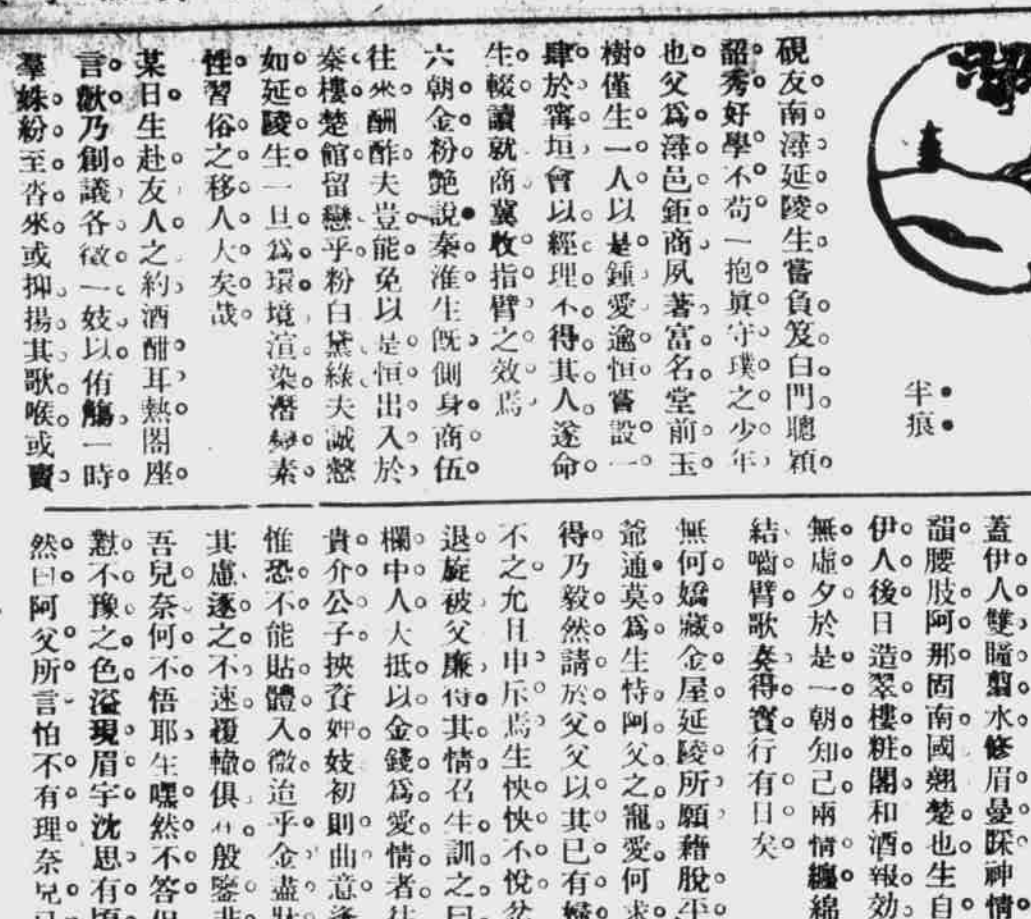 半痕
硯友南潯延陵生嘗負笈白門聰穎
韶秀好學不苟一抱眞守璞之少年
也父爲潯邑鉅商夙著富名堂前玉
樹僅生一人以是鍾愛逾恒嘗設一
肆於甯垣會以經理不得其人遂命
生輟讀就商冀收指臂之效焉
六朝金粉艷說秦淮生旣側身商伍
往來酬酢夫豈能免以是恒出入於
秦樓楚館留戀乎粉白黛綠夫誠慤
如延陵生一旦爲環境渲染潛變素
性習俗之移人大矣哉
某日生赴友人之約酒酣耳熱閤座
言歡乃創議各徵一妓以侑觴一時
羣姝紛至沓來或抑揚其歌喉或賣
蓋伊人雙瞳翦水修眉曼睩神情
韻腰肢阿那固南國翹楚也生自
伊人後日造翠樓粧閣和酒報効
無虛夕於是一朝知己兩情纏綿
結嚙臂歌奠得寳行有日矣
無何嬌藏金屋延陵所願藉脫
爺通莫爲生恃阿父之寵愛何求
得乃毅然請於父父以其已有婦
不之允且申斥焉生怏怏不悅忿
退旋被父廉得其情召生訓之曰
欄中人大抵以金錢爲愛情者往
貴介公子挾資妎妓初則曲意逢
惟恐不能貼體入微迨乎金盡
其慮逐之不速覆轍俱在殷鑒非
吾兒奈何不悟耶生嘿然不答但
懟不豫之色溢現眉宇沈思有頃
然曰阿父所言怕不有理奈兒已